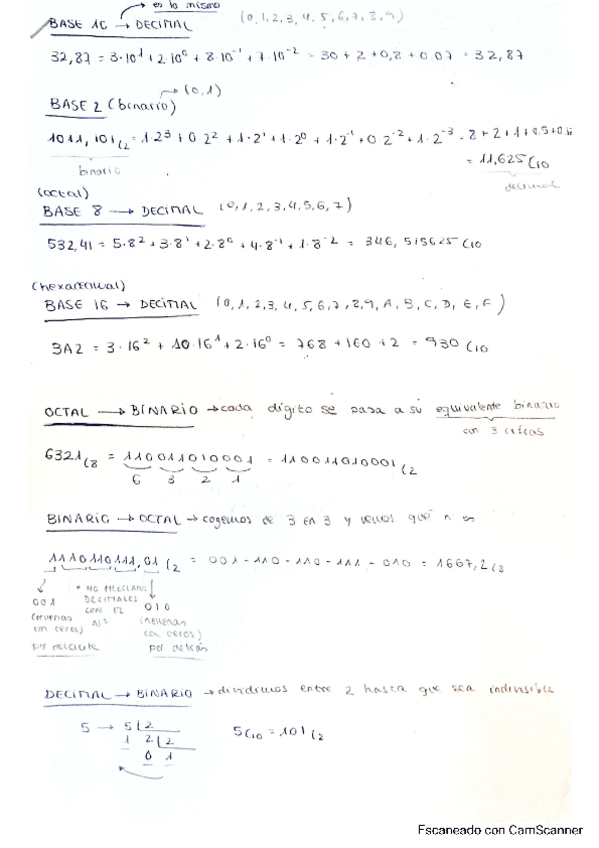 → es lo mismo
BASE 10 → DECIMAL (0,1,2,3,4,5,6,7,8,9)
32,87 = 3·10¹ + 2·10⁰ + 8·10⁻¹ + 7·10⁻² = 30 + 2 + 0,8 + 0.07 = 32,87
→ (0,1)
BASE 2 (binario)
1011,101(2 = 1·2³ + 0·2² + 1·2¹ + 1·2⁰ + 1·2⁻¹ + 0·2⁻² + 1·2⁻³ = 8+2+1+0.5+0,12
binario = 11,625(10
decimal
(octal)
BASE 8 → DECIMAL (0,1,2,3,4,5,6,7)
532,41 = 5·8² + 3·8¹ + 2·8⁰ + 4·8⁻¹ + 1·8⁻² = 346,515625(10
(hexadecimal)
BASE 16 → DECIMAL (0,1,2,3,4,5,6,7,8,9,A,B,C,D,E,F)
3A2 = 3·16² + 10·16¹ + 2·16⁰ = 768 + 160 + 2 = 930(10
OCTAL → BINARIO → cada dígito se pasa a su equivalente binario
con 3 cifras
6321(8 = 110011010001 = 110011010001(2
6 3 2 1
BINARIO → OCTAL → cogemos de 3 en 3 y vemos qué n es
1110110111,01(2 = 001 - 110 - 110 - 111 - 010 = 1667,2(8
* NO MEZCLAMOS
001 DECIMALES 010
(rellenas CON EL (rellenas
con ceros) Nº con ceros)
por delante por detrás
DECIMAL → BINARIO → dividimos entre 2 hasta que sea indivisible
5 → 5 2 5(10 = 101(2
1 2 2
0 1
Escaneado con CamScanner